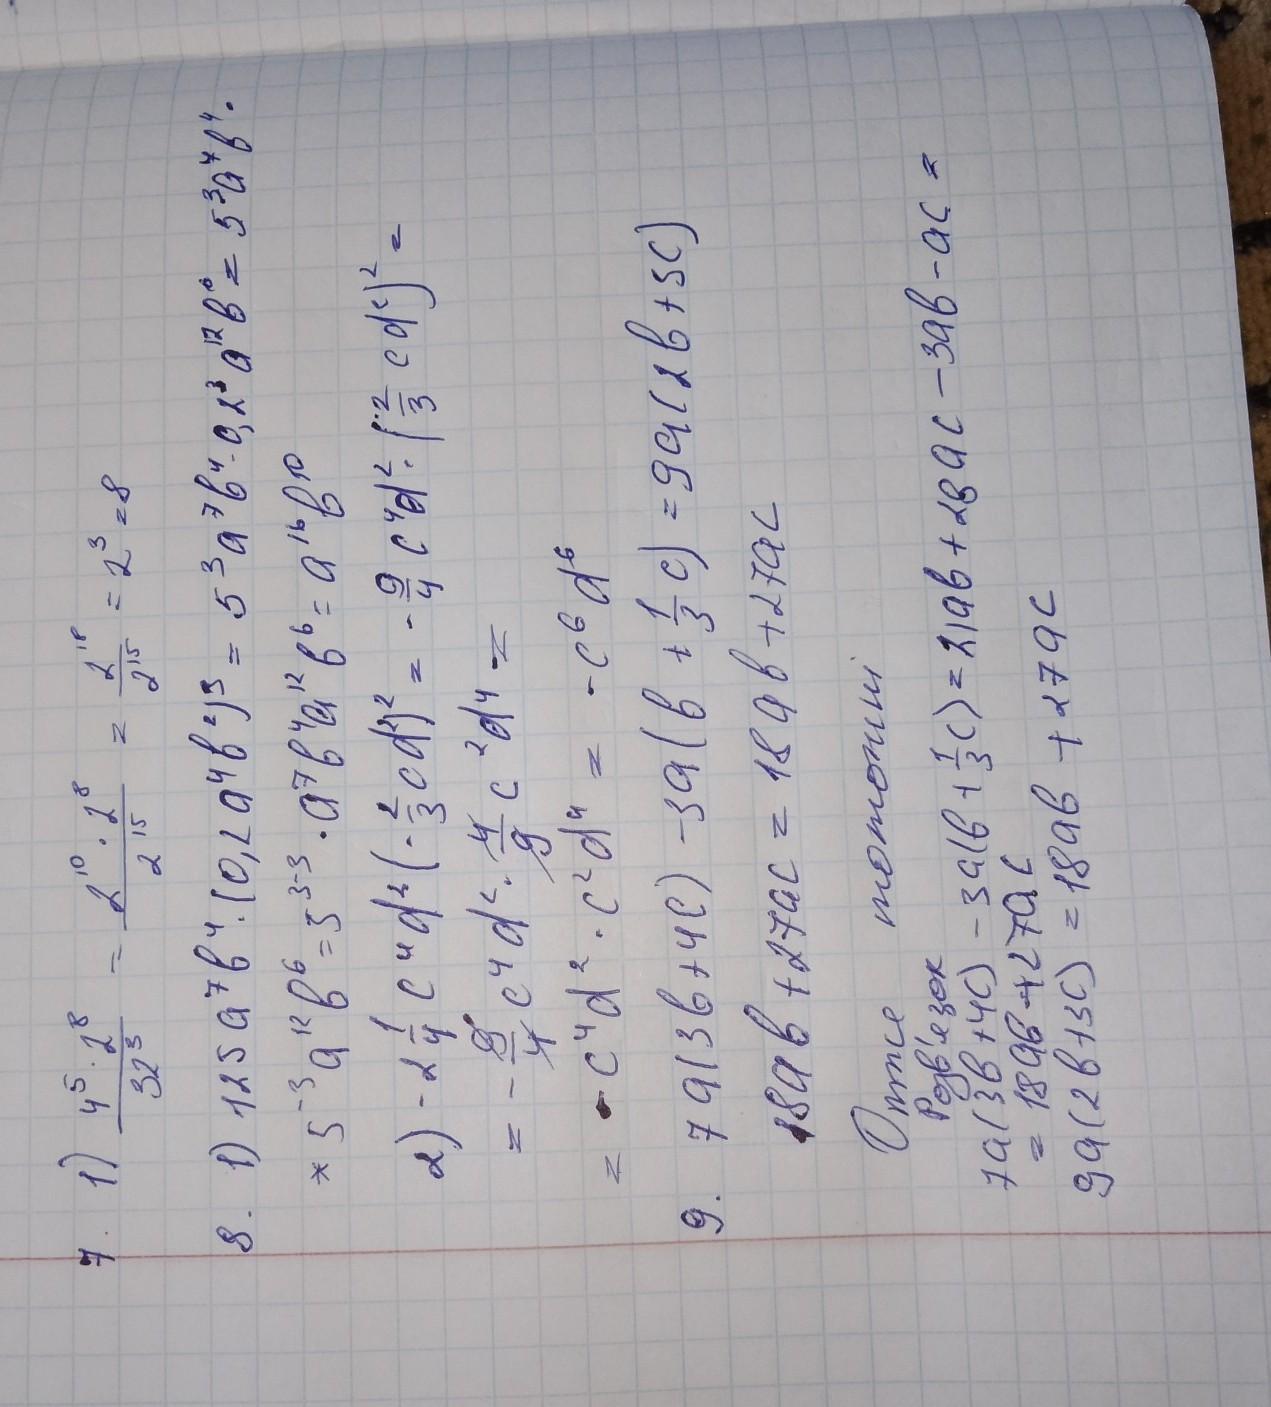 7. 1) 4⁵·2⁸/32³ = 2¹⁰·2⁸/2¹⁵ = 2¹⁸/2¹⁵ = 2³ = 8
8. 1) 125a⁷b⁴·(0,2a⁴b²)³ = 5³a⁷b⁴·0,2³a¹²b⁶ = 5³a⁷b⁴·
× 5⁻³a¹²b⁶ = 5³⁻³·a⁷b⁴a¹²b⁶ = a¹⁶b¹⁰
2) -2 1/4 c⁴d²(-2/3 cd²)² = -9/4 c⁴d²·(-2/3 cd²)² =
= -9/4 c⁴d²·4/9 c²d⁴ =
= -c⁴d²·c²d⁴ = -c⁶d⁶
9. 7a(3b+4c) -3a(b + 1/3 c) = 9a(2b+3c)
18ab+27ac = 18ab+27ac
Отже тотожні
Розв'язок
7a(3b+4c) -3a(b+1/3 c) = 21ab+28ac-3ab-ac =
= 18ab+27ac
9a(2b+3c) = 18ab +27ac